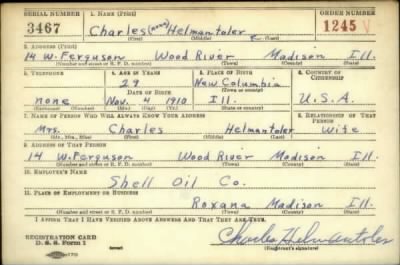 SERIAL NUMBER 1. NAME (Print) ORDER NUMBER
3467 Charles (none) Helmantoler 1245 V
(First) (Middle) (Last)
2. ADDRESS (Print)
14 W. Ferguson Wood River Madison Ill.
(Number and street or R. F. D. number) (Town) (County) (State)
3. TELEPHONE 4. AGE IN YEARS 5. PLACE OF BIRTH 6. COUNTRY OF CITIZENSHIP
29 New Columbia
DATE OF BIRTH (Town or county)
none Nov. 4 1910 Ill. U.S.A.
(Exchange) (Number) (Mo.) (Day) (Yr.) (State or country)
7. NAME OF PERSON WHO WILL ALWAYS KNOW YOUR ADDRESS 8. RELATIONSHIP OF THAT PERSON
Mrs. Charles Helmantoler Wife
(Mr., Mrs., Miss) (First) (Middle) (Last)
9. ADDRESS OF THAT PERSON
14 W. Ferguson Wood River Madison Ill.
(Number and street or R. F. D. number) (Town) (County) (State)
10. EMPLOYER'S NAME
Shell Oil Co.
11. PLACE OF EMPLOYMENT OR BUSINESS
Roxana Madison Ill.
(Number and street or R. F. D. number) (Town) (County) (State)
I AFFIRM THAT I HAVE VERIFIED ABOVE ANSWERS AND THAT THEY ARE TRUE.
REGISTRATION CARD
D. S. S. Form 1 Charles Helmantoler
(Registrant's signature)